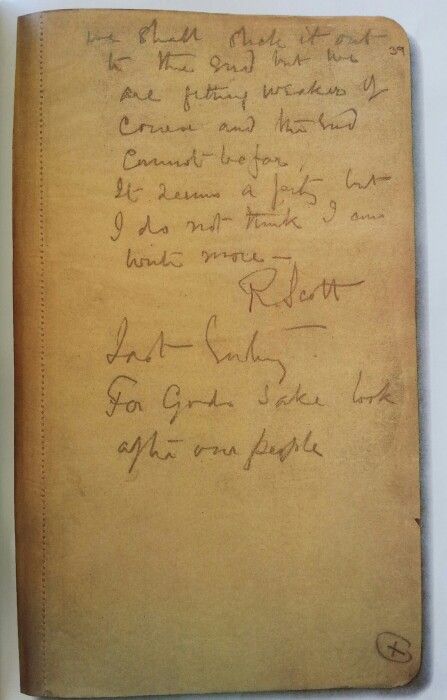 we shall stick it out
39
to the end but we
are getting weaker of
course and the end
cannot be far.
It seems a pity but
I do not think I can
write more –
R. Scott
Last Entry
For Gods sake look
after our people
+